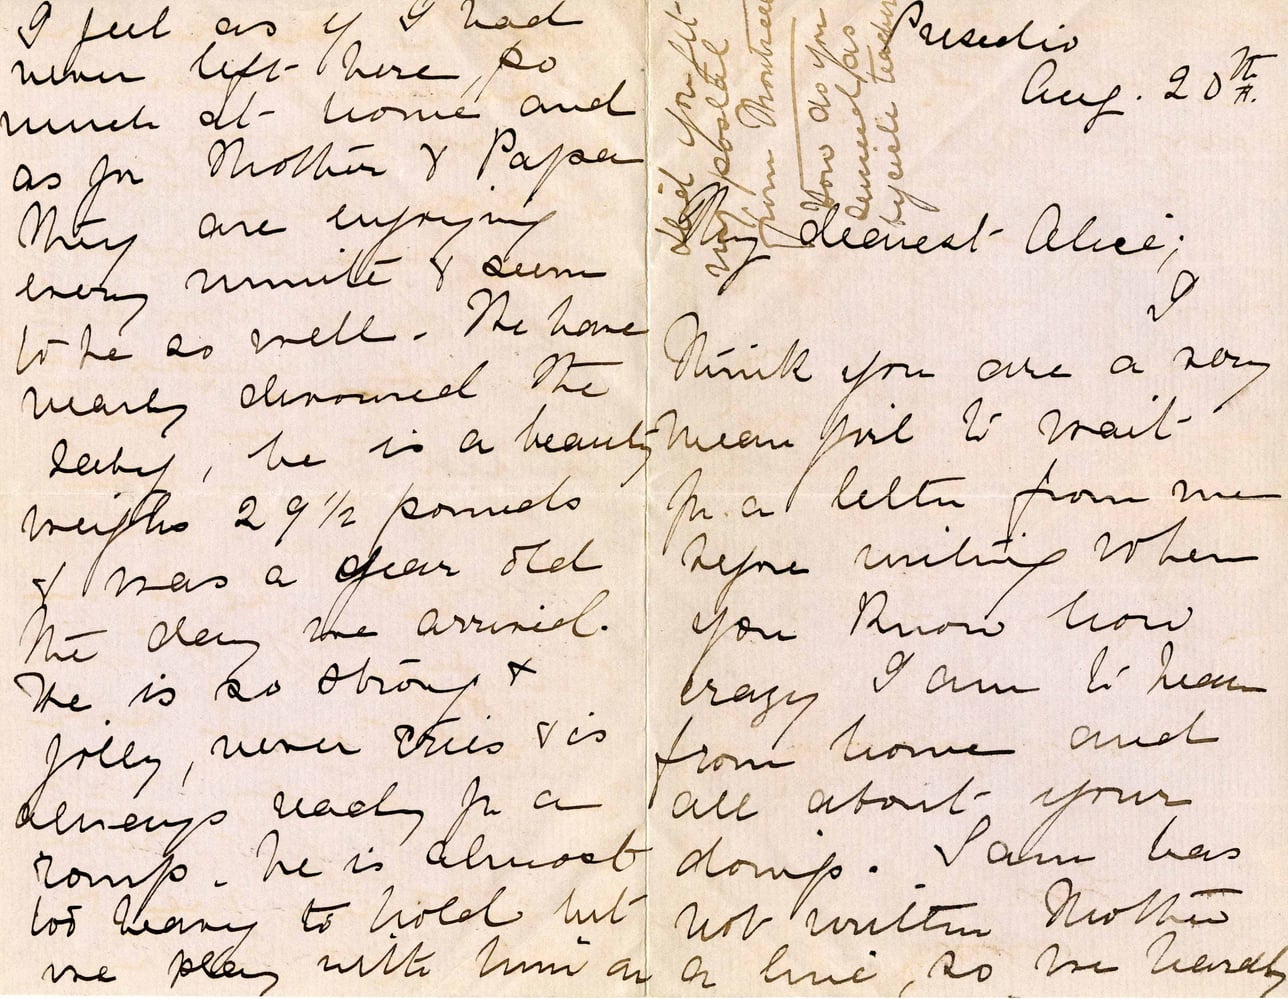 Presidio
Aug. 20th
My dearest Alice;
I
think you are a very
mean girl to wait
for a letter from me
before writing when
you know how
crazy I am to hear
from home and
all about your
doings. Sam has
not written Mother
a line, so we hardly
Did you get
my postal
from Montreal
How do you
succeed as
bycicle teacher
I feel as if I had
never left here, so
much at home and
as for Mother & Papa
They are enjoying
every minute & seem
to be so well. The have
nearly devoured the
baby, he is a beauty
weighs 29 1/2 pounds
& was a year old
the day we arrived.
He is so strong &
jolly, never cries & is
always ready for a
romp. he is almost
too heavy to hold but
we play with him on